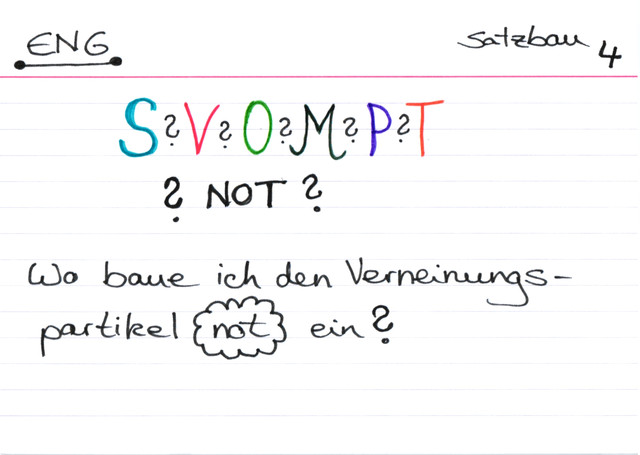 ENG
Satzbau 4
S?V?O?M?P?T
? NOT ?
Wo baue ich den Verneinungs-
partikel not ein?